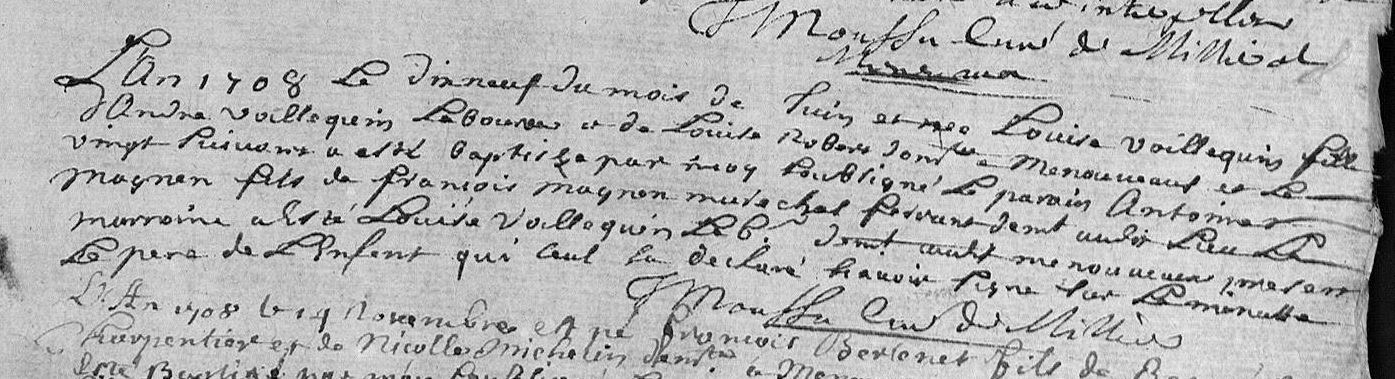 Moussu Curé de Millieres
L'An 1708 Le dixneuf du mois de Juin est nee Louise voillequin fille
d'Andre voillequin Laboureur et de Louise Robert demte a Menouveaux et Le
vingt suivant a esté baptisée par moy soubsigné Le parain Antoine
magnen fils de françois magnen marechal ferrant demt audit Lieu La
marraine a Esté Louise voillequin demt audit menouveaux present
Le pere de L'Enfant qui seul a declaré scavoir signe sur La minutte
Moussu Curé de Millieres
L'An 1708 le 14 Novembre est né François Bertenet fils de
Charpentier et de Nicolle Michelin demte a
Esté Baptisé par moy soubsigné